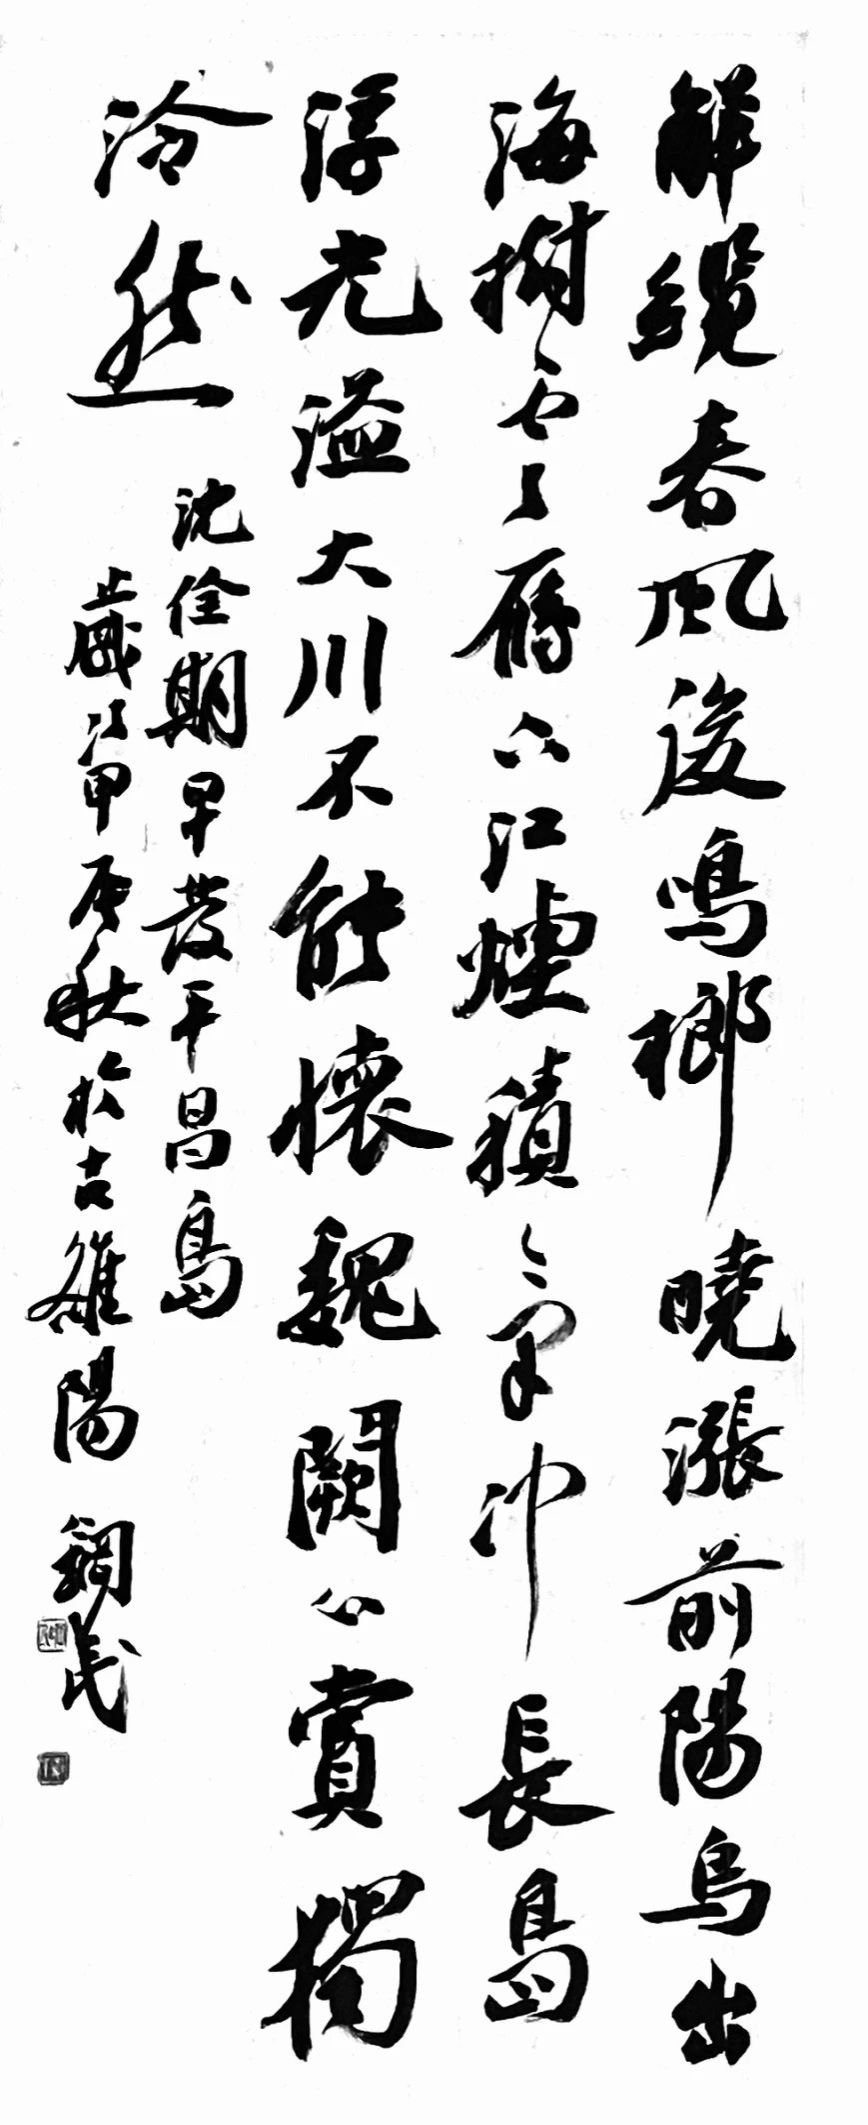 解纜春風後鳴榔曉漲前陽烏出
海樹雲雁下江煙積氣沖長島
浮光溢大川不能懷魏闕心賞獨
泠然
沈佺期早發平昌島
歲次甲辰秋於古雒陽 鋼民